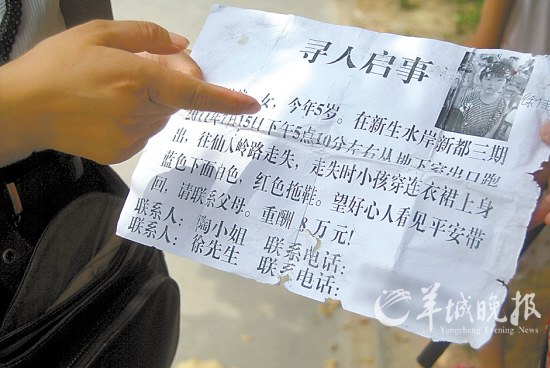 寻人启事
女，今年5岁。在新生水岸新都三期
2011年7月15日下午5点10分左右从地下室出口跑
出，往仙人岭路走失，走失时小孩穿连衣裙上身
蓝色下面白色，红色拖鞋。望好心人看见平安带
回，请联系父母。重酬8万元!
联系人：陶小姐 联系电话：
联系人：徐先生 联系电话：
羊城晚报
Yangcheng Evening News